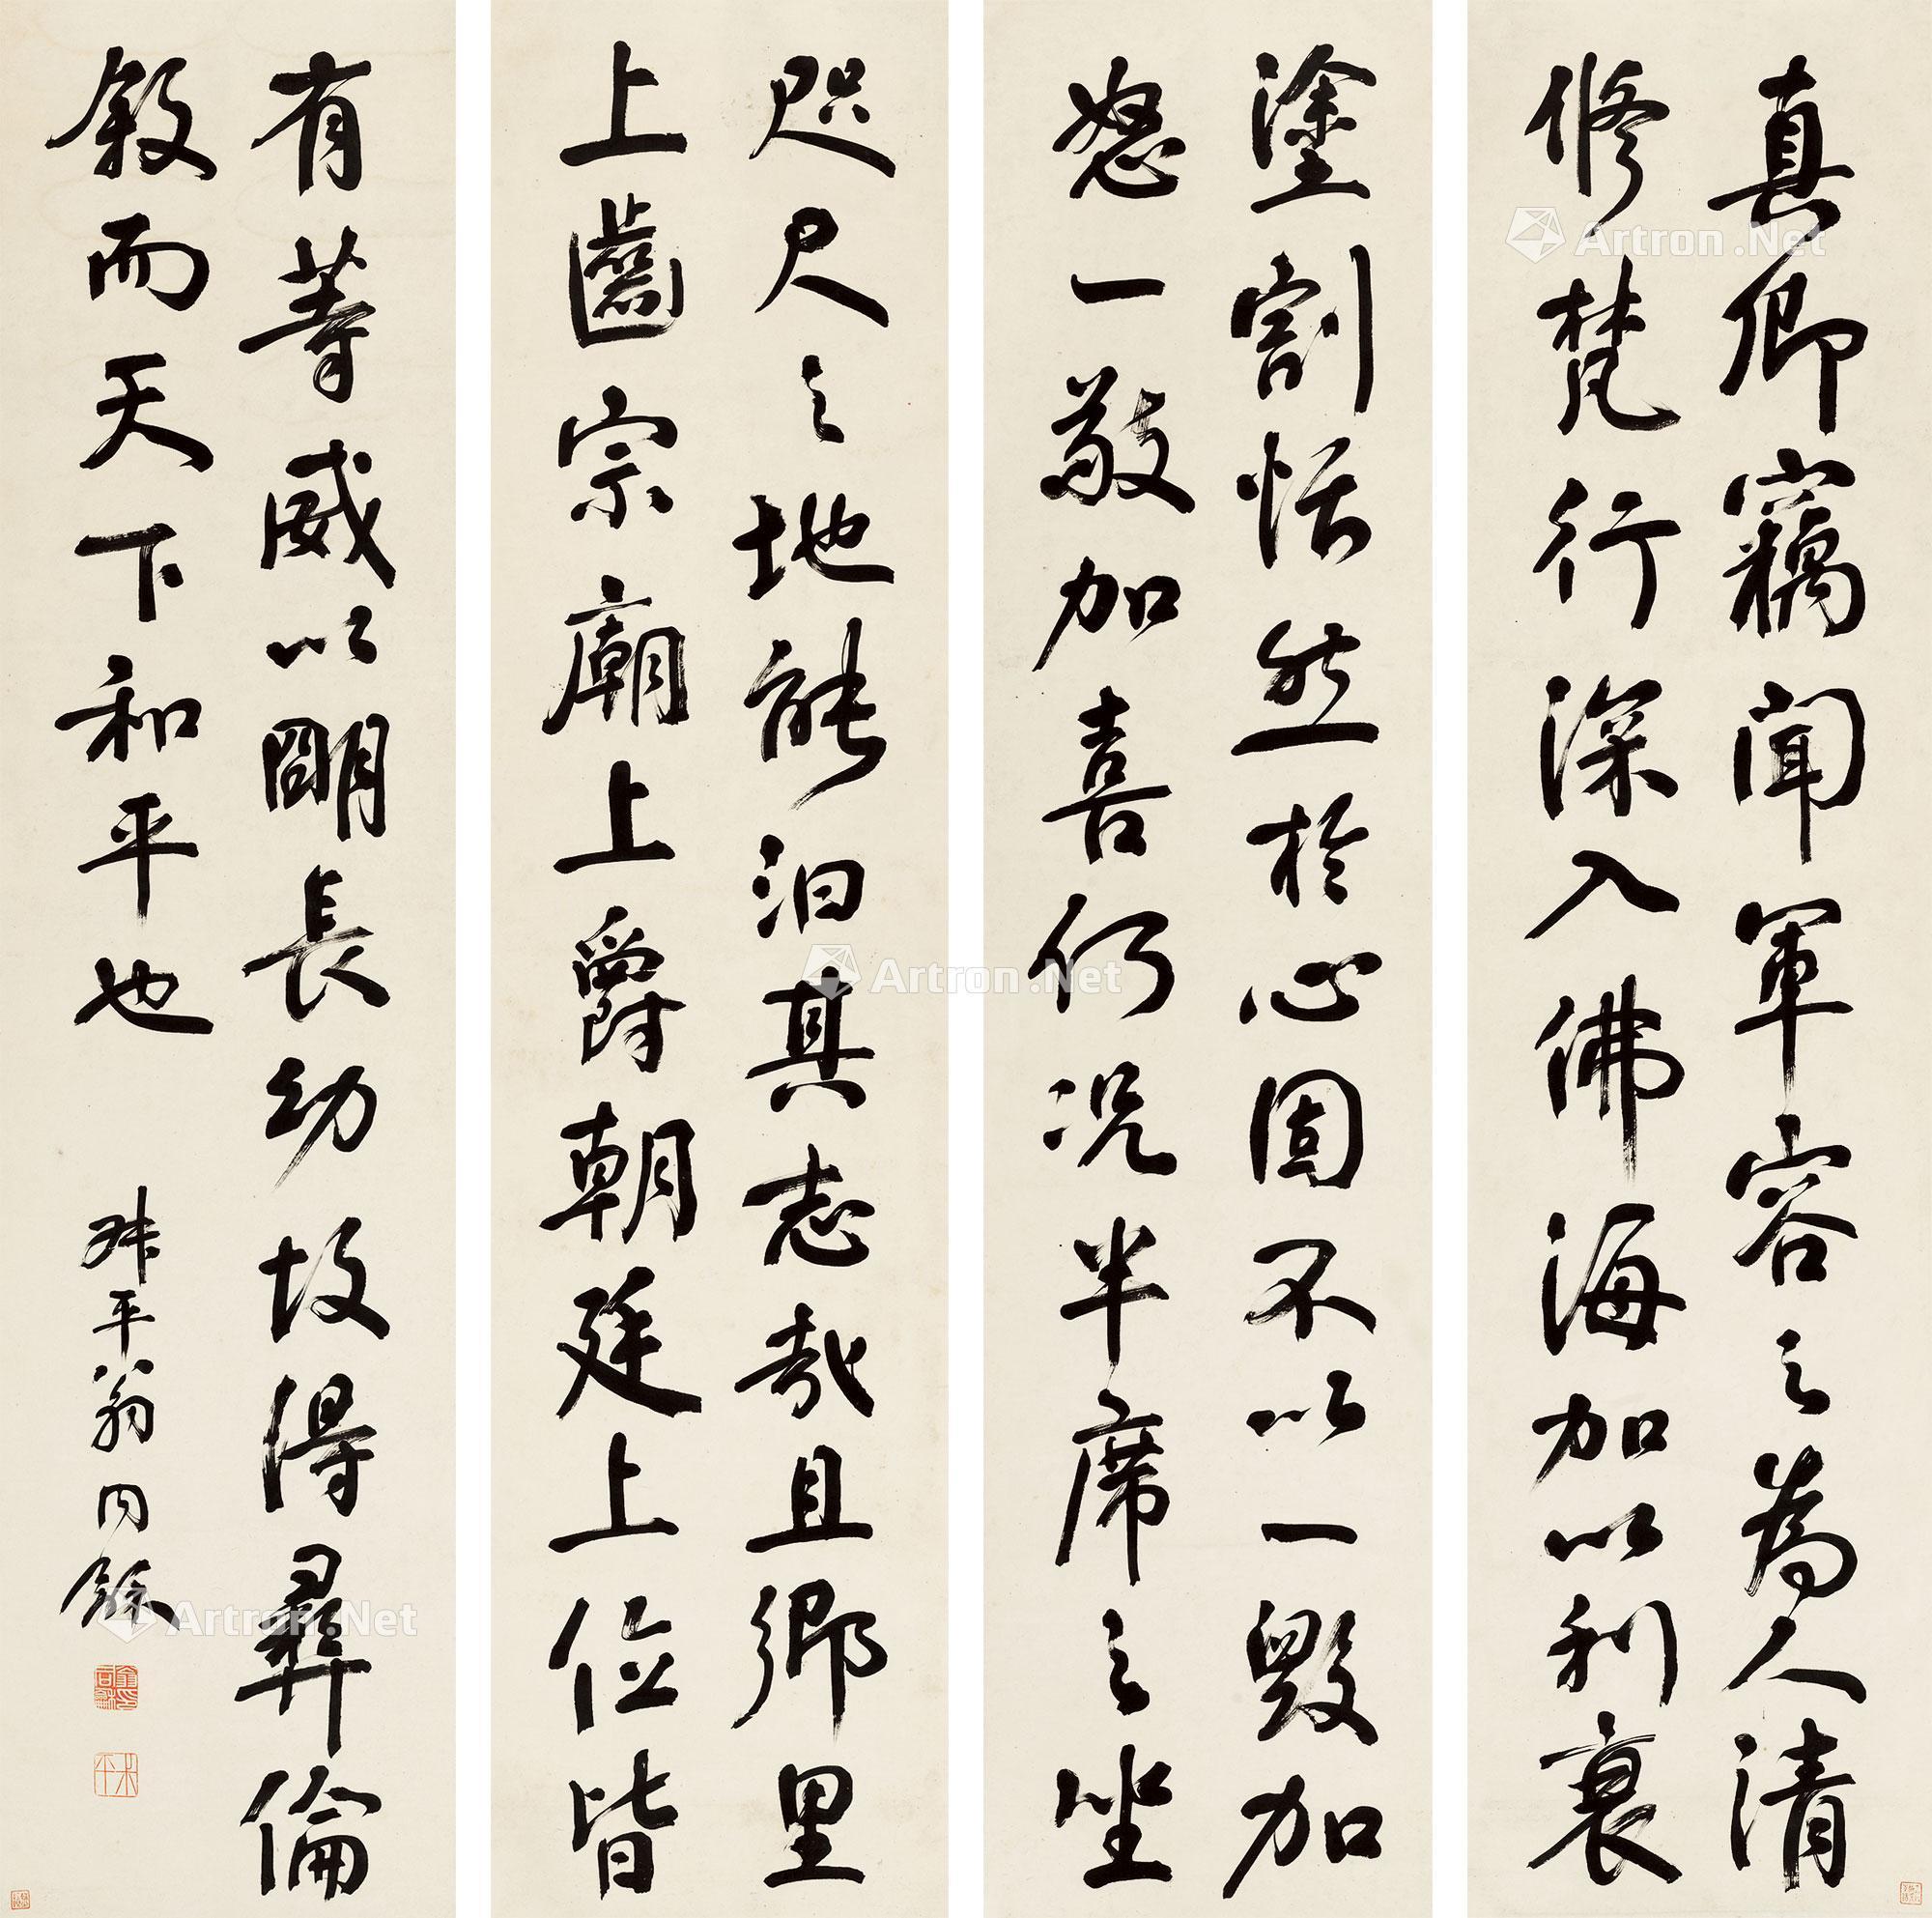 真卿竊聞軍容之為人清
修梵行深入佛海加以利衰
塗割恬然於心固不以一毀加
怒一敬加喜仍况半席之坐
咫尺之地能汩其志哉且鄉里
上齒宗廟上爵朝廷上位皆
有等威以明長幼故得彝倫
叙而天下和平也
叔平翁同龢
翁同龢印
叔平
Artron.Net
Artron.Net
Artron.Net